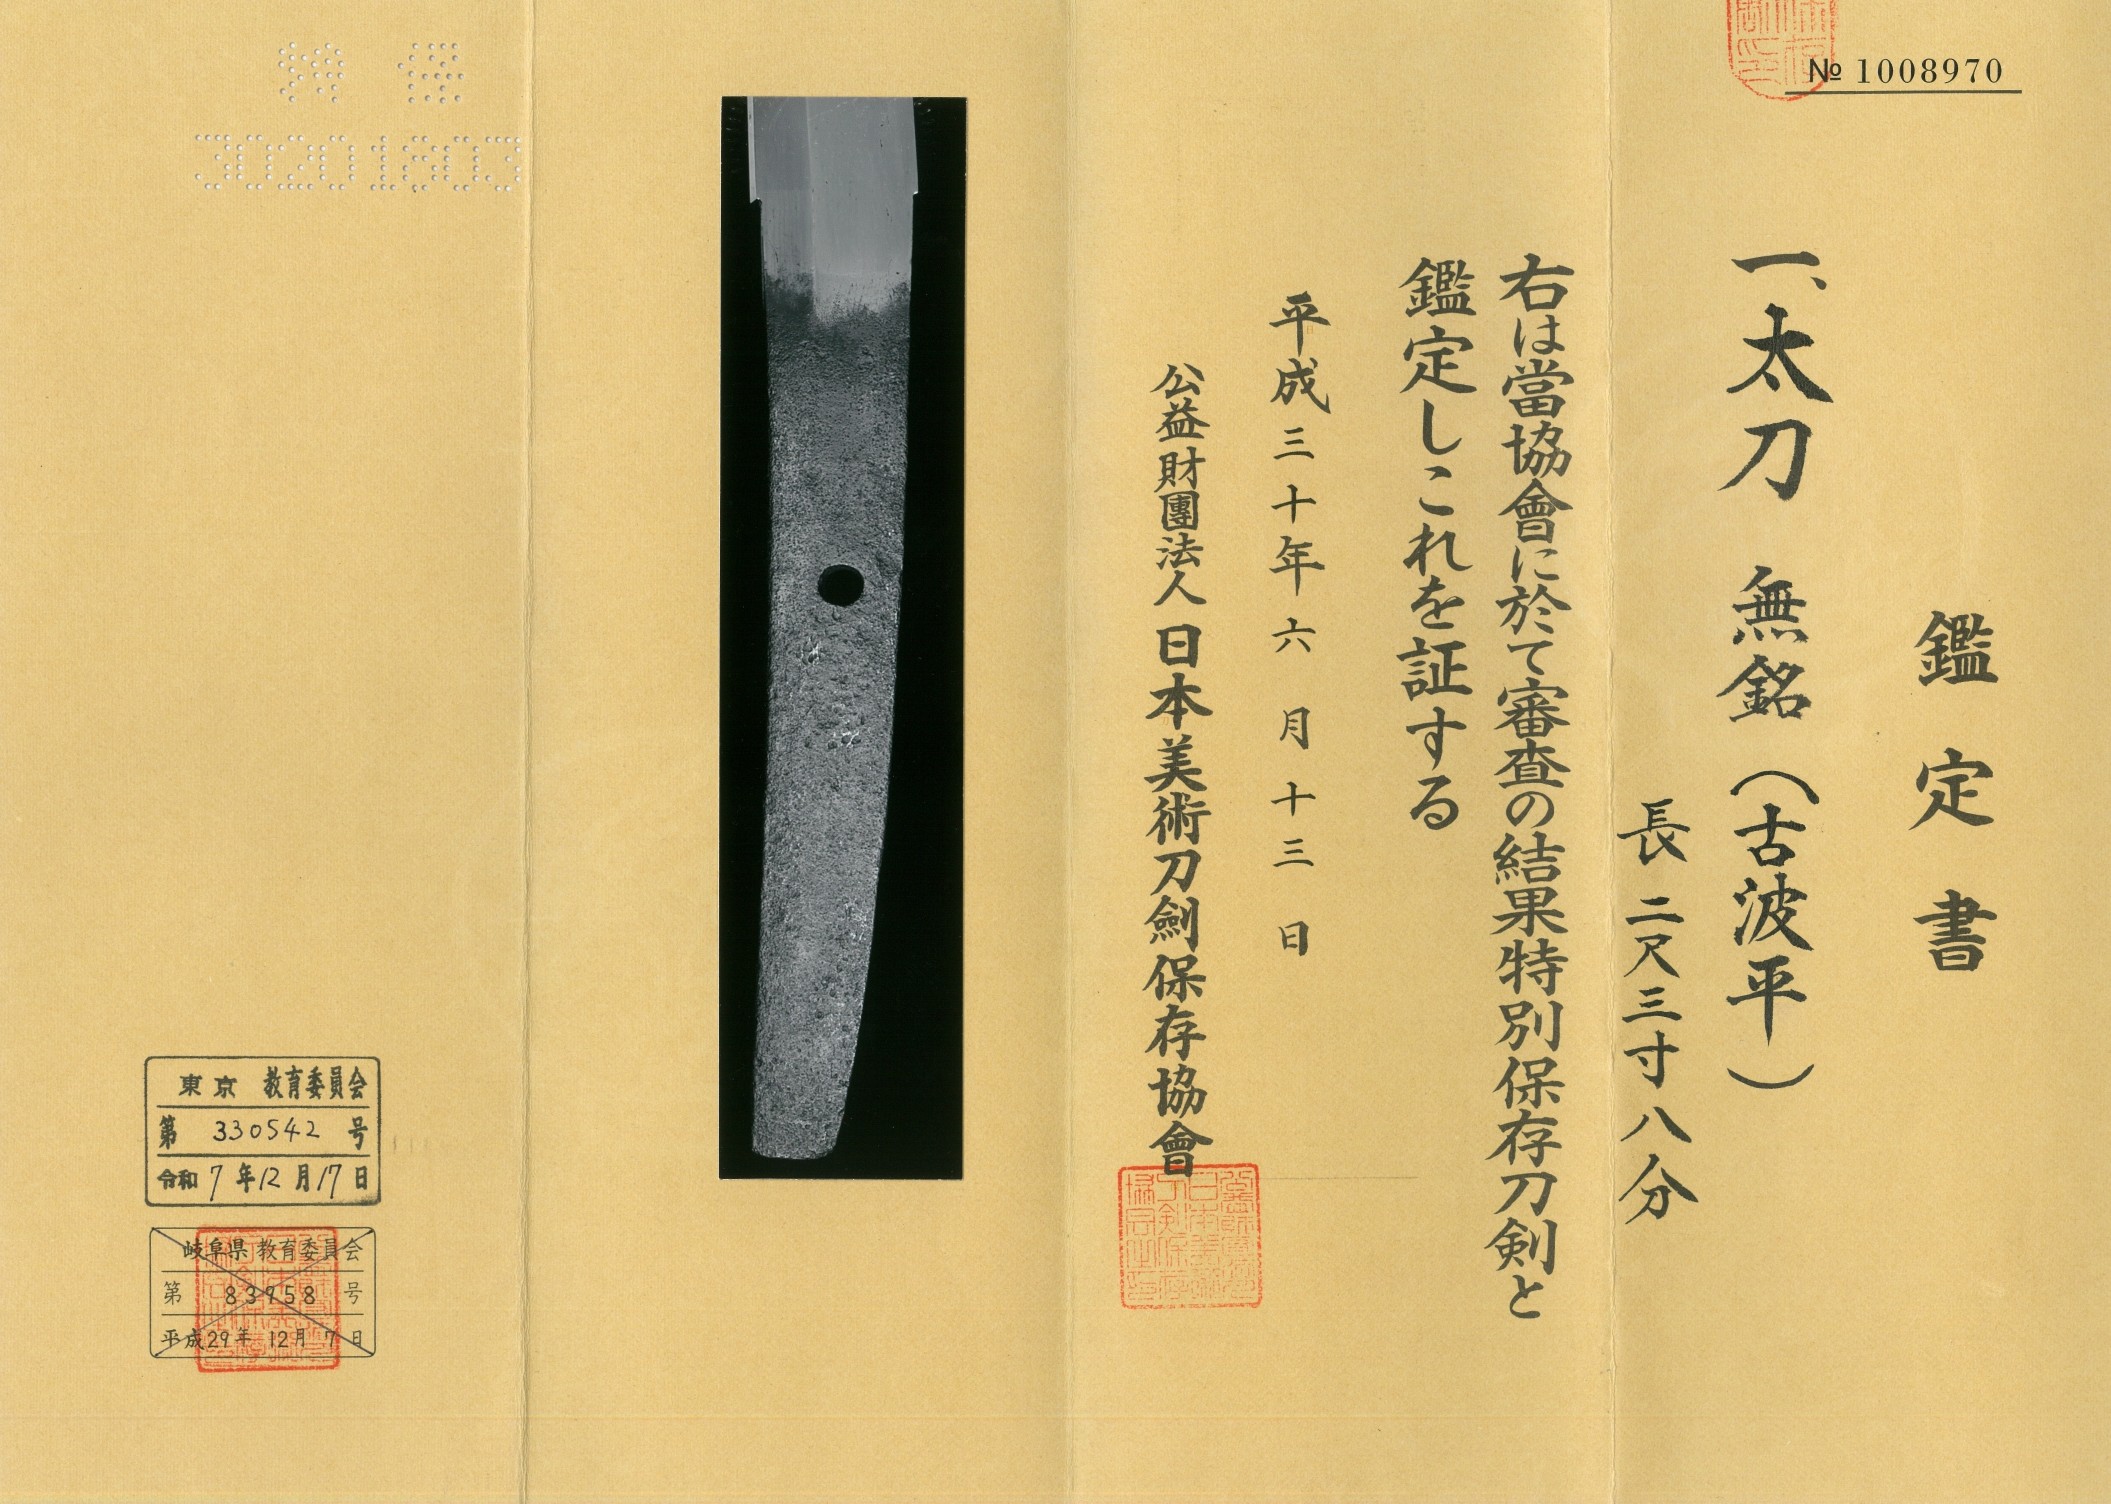 № 1008970
鑑定書
一、太刀 無銘（古波平）
長 二尺三寸八分
右は當協會に於て審査の結果特別保存刀剣と
鑑定しこれを証する
平成三十年六月十三日
公益財團法人 日本美術刀劍保存協會
30201603
東京 教育委員会
第 330542 号
令和 7 年 12 月 17 日
岐阜県 教育委員会
第 83958 号
平成 29 年 12 月 7 日